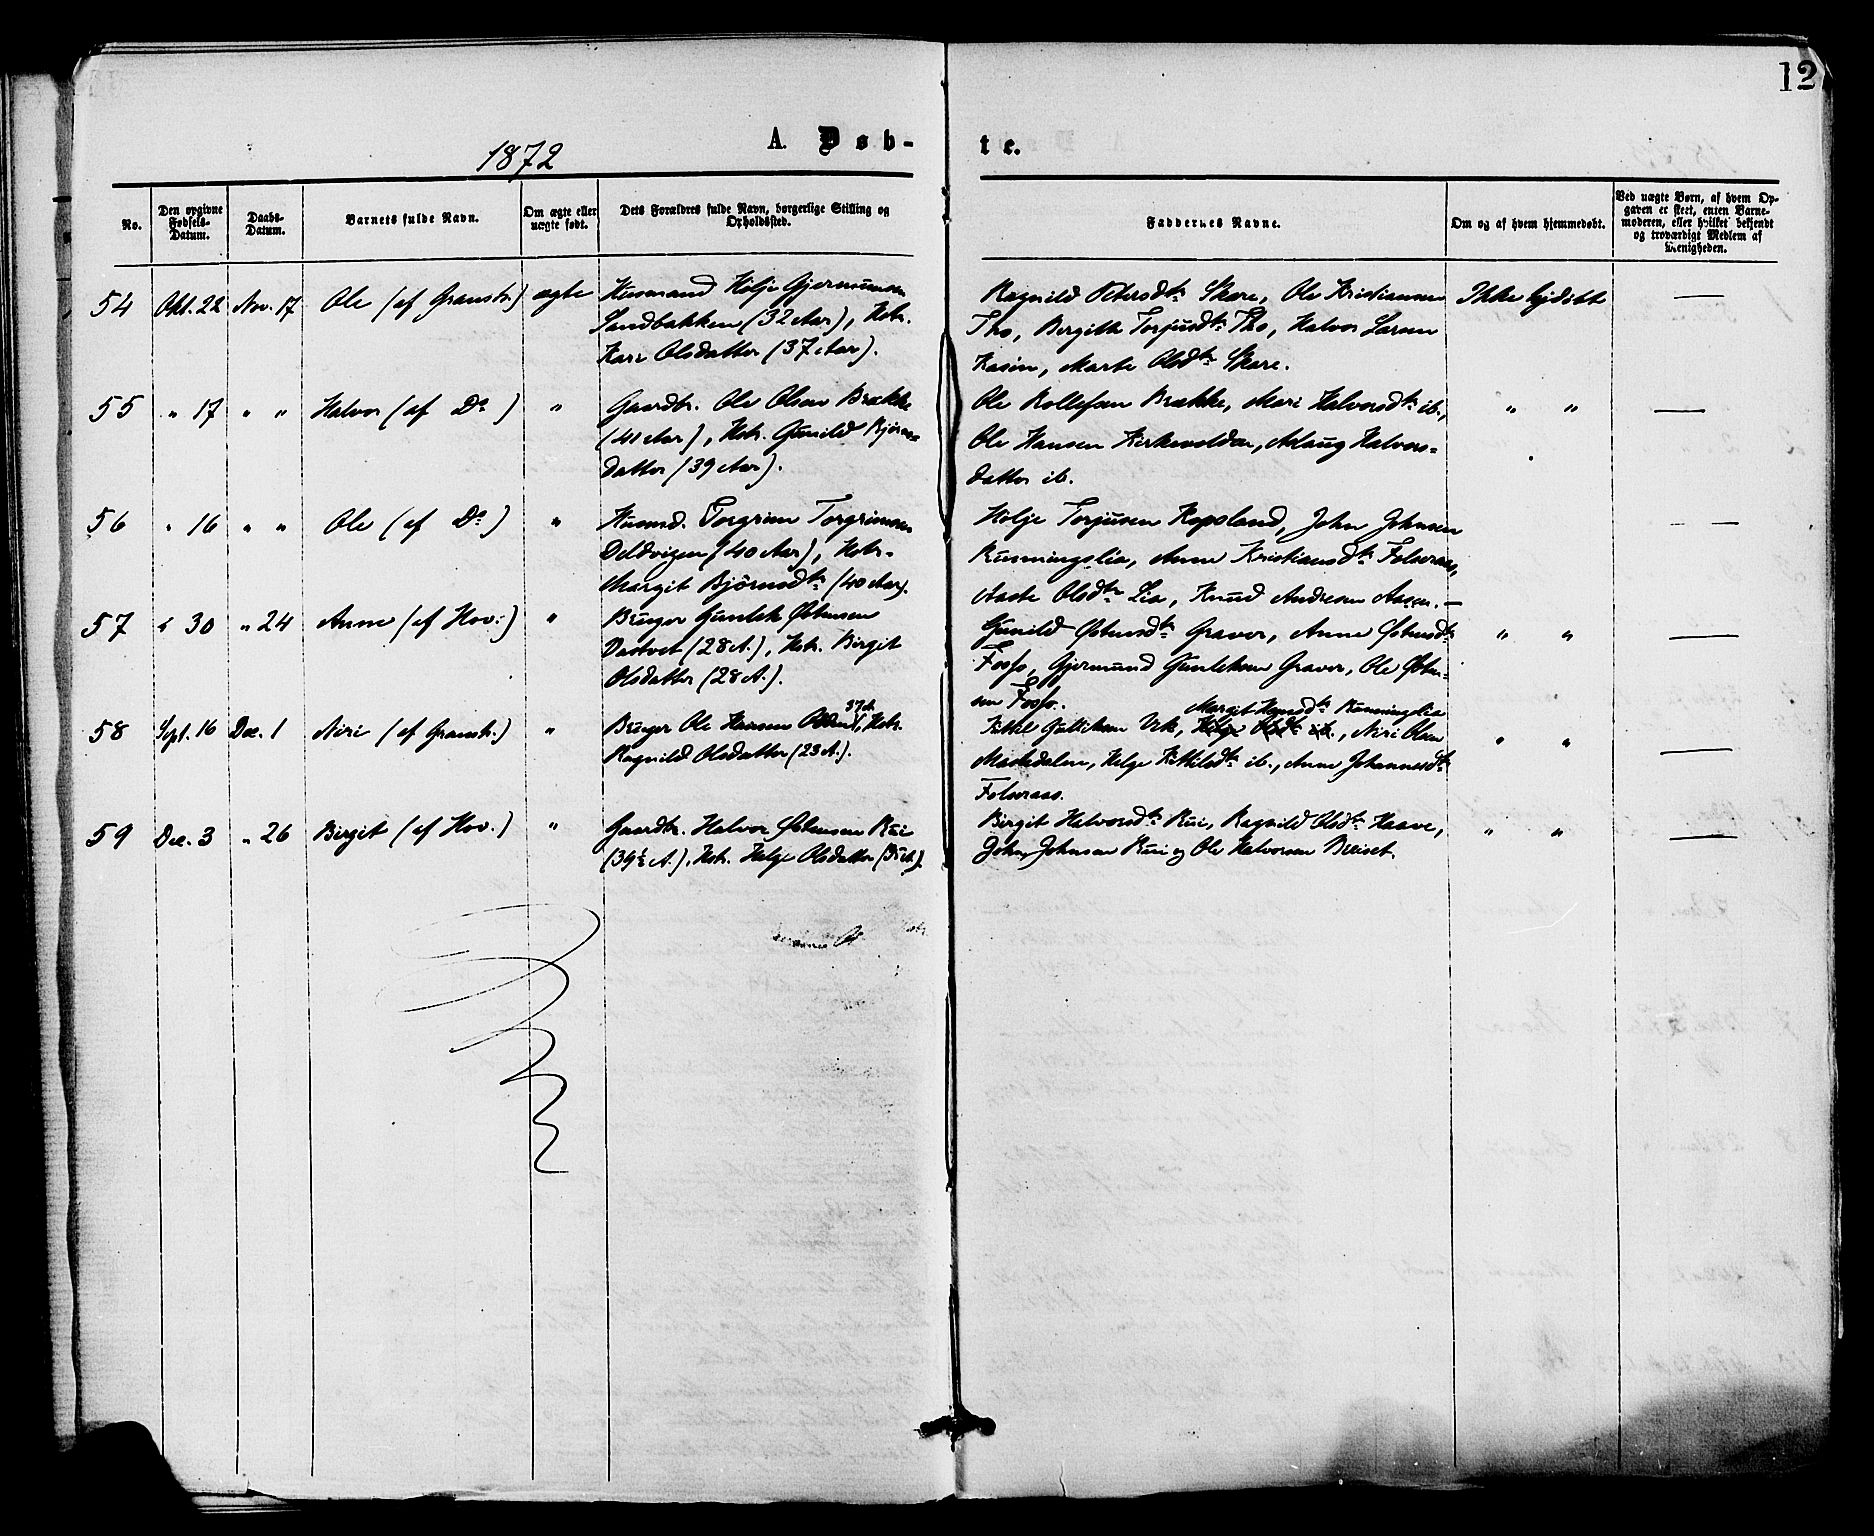 12
1872
A. Døb-
te.
No.
Den opgivne Fødsels-Datum.
Daabs-Datum.
Barnets fulde Navn.
Om ægte eller uægte født.
Dets Forældres fulde Navn, borgerlige Stilling og Opholdssted.
Faddernes Navne.
Om og af hvem hjemmedøbt.
Ved uægte Børn, af hvem Opgaven er skeet, enten Barnemoderen, eller hvilket bekjendt og troværdigt Medlem af Menigheden.
54 Okt. 22 Nov. 17 Ole (af Gransh.) ægte Husmand Kilje Gjermunsen
Sandbakken (32 Aar), Hstr.
Kari Olsdatter (37 Aar).
Ragnild Petersdtr Skare, Ole Kristiansen Ikke hjdøbt —
Tho, Birgith Torjusdtr Tho, Halvor Larsen
Kasin, Marte Olsdtr Skare.
55 " 17 " " Halvor (af Do) " Gaardbr. Ole Olsen Brække
(41 Aar), Hstr. Gunild Bjørns-
datter (39 Aar).
Ole Rollefsen Brække, Mari Halvorsdtr ib., " " —
Ole Hansen Kirkevolden, Aslaug Halvors-
datter ib.
56 " 16 " " Ole (af Do) " Husmd. Torgrim Torgrimsen
(40 Aar), Hstr.
Margit Bjørnsdtr (40 Aar).
Kolje Torjusen Kopsland, John Johnsen — —
Rusmingslia, Anne Kristiansdtr Folseraas,
Aaste Olsdtr Lia, Knud Andresen Aasen. —
57 " 30 " 24 Anne (af Hov.) " Bruger Gunlek Østensen
Dastvet (28 A.), Hstr. Birgit
Olsdatter (28 A.).
Gunild Østensdtr Graver, Anne Østensdtr " " —
Fosso, Gjermund Gunleksen Graver, Ole Østen-
sen Fosso.
58 Sept. 16 Dec. 1 Niri (af Gransh.) " Bruger Ole Hansen 37 A. Hstr.
Ragnild Olsdatter (23 A.).
Margit Hansdtr Rusminglia
Kittil Gulliksen Vek, Helge Olsdtr ib., Niri Olsen " " —
Maskedalen, Helge Kittilsdtr ib., Anne Johannesdtr
Folseraas.
59 Dec. 3 " 26 Birgit (af Hov.) " Gaardbr. Halvor Østensen Rui
(39½ A.), Hstr. Helge Olsdatter
Birgit Halvorsdtr Rui, Ragnild Olsdtr Haave, " " —
John Johnsen Rui og Ole Halvorsen Bleiset.